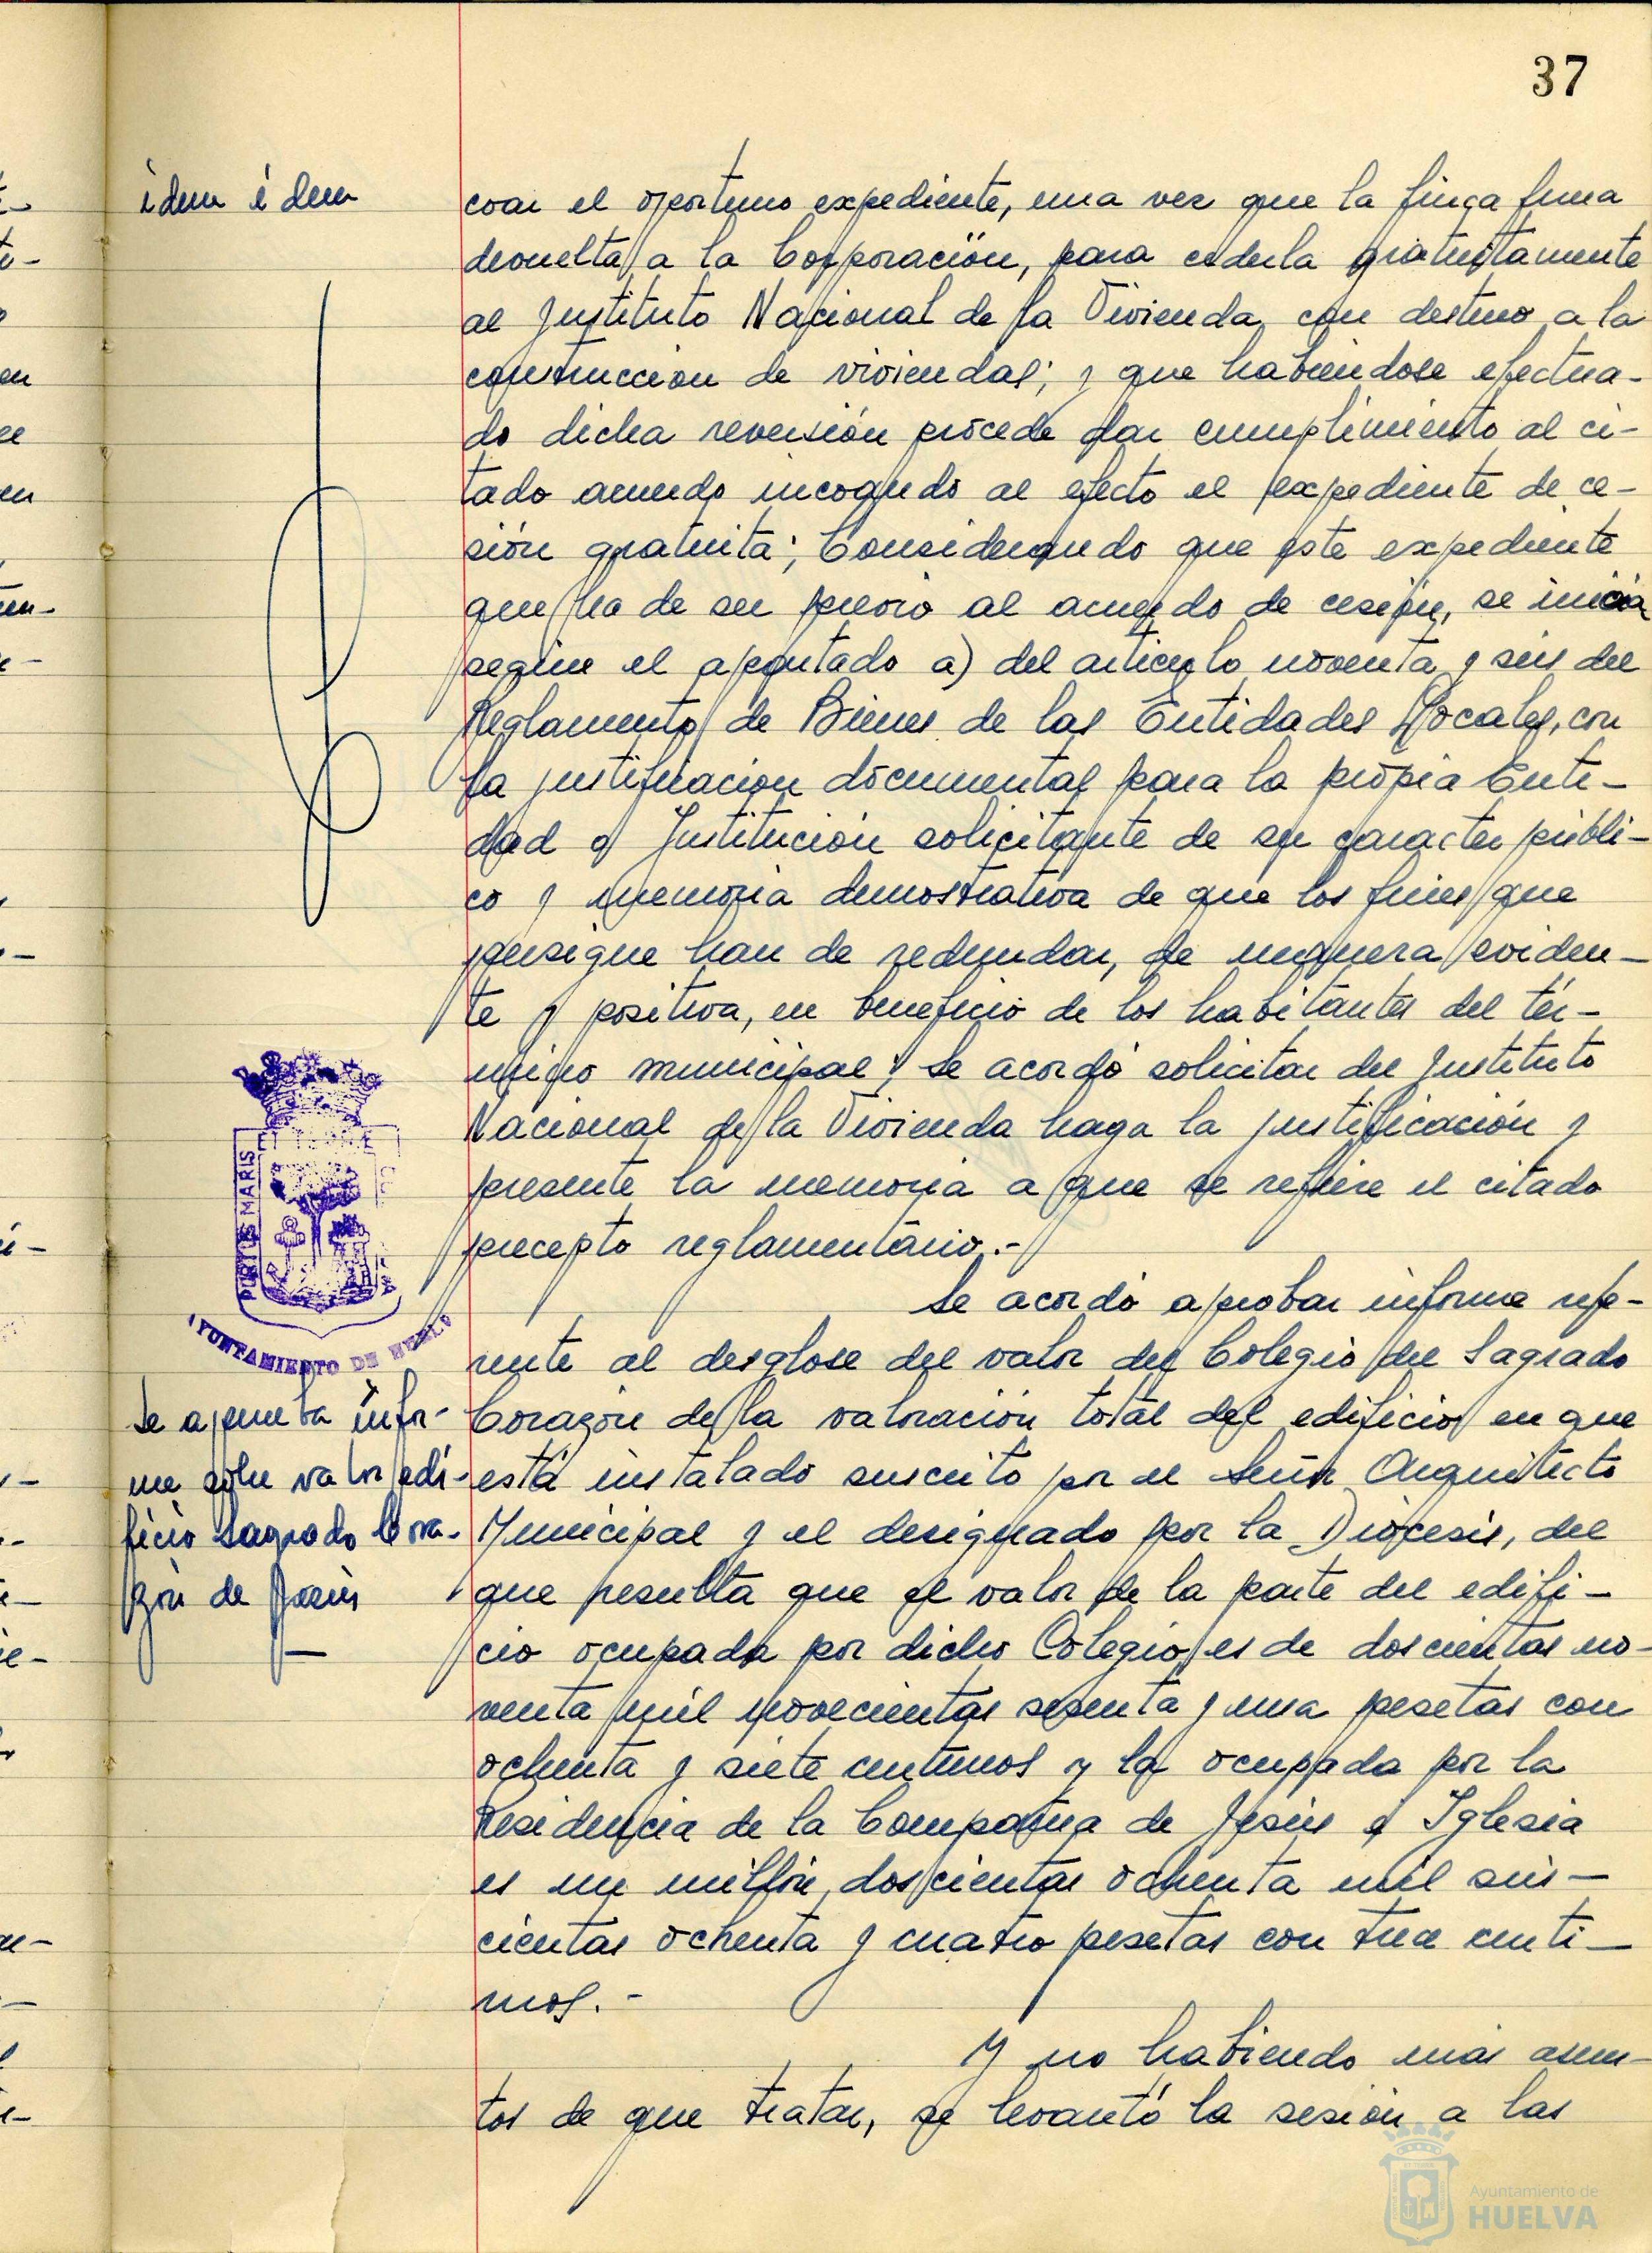 37
idem idem
coar el oportuno expediente, una vez que la finca fuera
devuelta a la Corporación, para cederla gratuitamente
al Instituto Nacional de la Vivienda, con destino a la
construccion de viviendas; y que habiendose efectua-
do dicha reversión procede dar cumplimiento al ci-
tado acuerdo incoando al efecto el expediente de ce-
sión gratuita; Considerando que este expediente
que ha de ser previo al acuerdo de cesión, se inicia
segun el apartado a) del articulo noventa y seis del
Reglamento de Bienes de las Entidades Locales, con
la justificacion documental para la propia Enti-
dad o Institución solicitante de su caracter públi-
co y memoria demostrativa de que los fines que
persigue han de redundar, de manera eviden-
te y positiva, en beneficio de los habitantes del tér-
mino municipal; Se acordó solicitar del Instituto
Nacional de la Vivienda haga la justificación y
presente la memoria a que se refiere el citado
precepto reglamentario.-
PORTUS MARIS
ET TERRE
AYUNTAMIENTO DE HUELVA
Se acordó aprobar informe refe-
rente al desglose del valor del Colegio del Sagrado
Se aprueba infor-
me sobre valor edi-
ficio Sagrado Cora-
zón de Jesús
Corazón de la valoración total del edificio en que
está instalado suscrito por el Señor Arquitecto
Municipal y el designado por la Diócesis, del
que resulta que el valor de la parte del edifi-
cio ocupada por dicho Colegio es de doscientas no-
venta mil novecientas sesenta y una pesetas con
ochenta y siete centimos y la ocupada por la
Residencia de la Compañia de Jesús e Iglesia
es un millón, doscientas ochenta mil seis-
cientas ochenta y cuatro pesetas con trece centi-
mos.-
Y no habiendo más asun-
tos de que tratar, se levantó la sesión a las
Ayuntamiento de
HUELVA